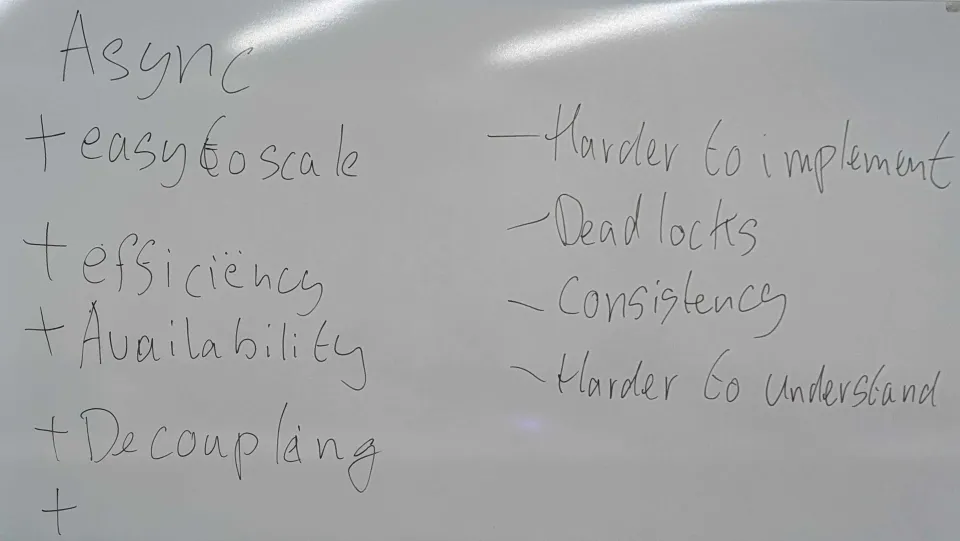 Async
+ easy to scale
+ efficiëncy
+ Availability
+ Decoupling
+
- Harder to implement
- Deadlocks
- Consistency
- Harder to understand